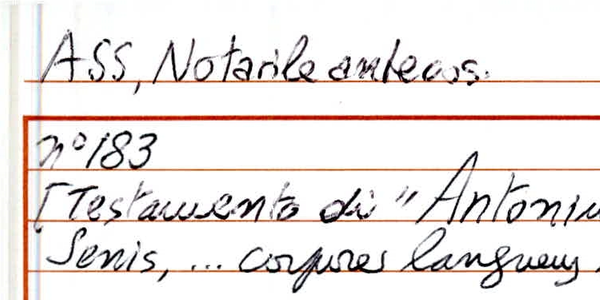 ASS, Notarile antecos.
n° 183
[Testamento di "Antoniu
Senis, ... corpores languens